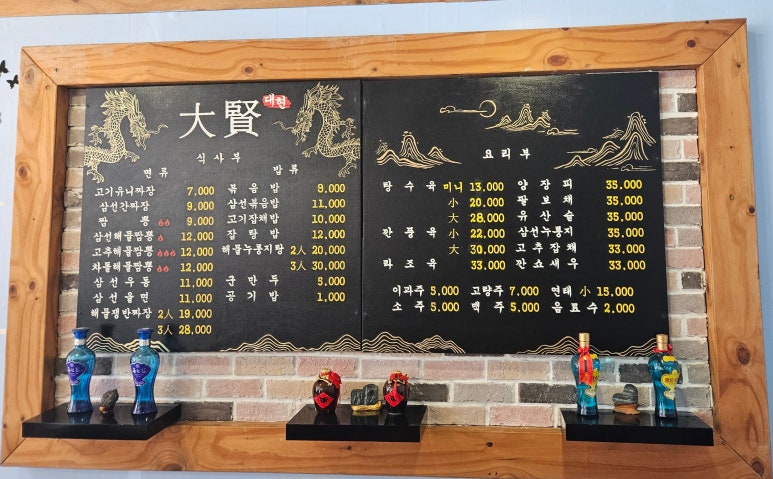 大賢 대현
식사부
면류 밥류
고기유니짜장 7,000
삼선간짜장 9,000
짬뽕 9,000
삼선해물짬뽕 12,000
고추해물짬뽕 12,000
차돌해물짬뽕 12,000
삼선우동 11,000
삼선울면 11,000
해물쟁반짜장 2人 19,000
3人 28,000
볶음밥 9,000
삼선볶음밥 11,000
고기잡채밥 10,000
잡탕밥 12,000
해물누룽지탕 2人 20,000
3人 30,000
군만두 5,000
공기밥 1,000
요리부
탕수육 미니 13,000
小 20,000
大 28,000
깐풍육 小 22,000
大 30,000
라조육 33,000
양장피 35,000
팔보채 35,000
유산슬 35,000
삼선누룽지 35,000
고추잡채 33,000
깐쇼새우 33,000
이과주 5,000 고량주 7,000 연태 小 15,000
소주 5,000 맥주 5,000 음료수 2,000